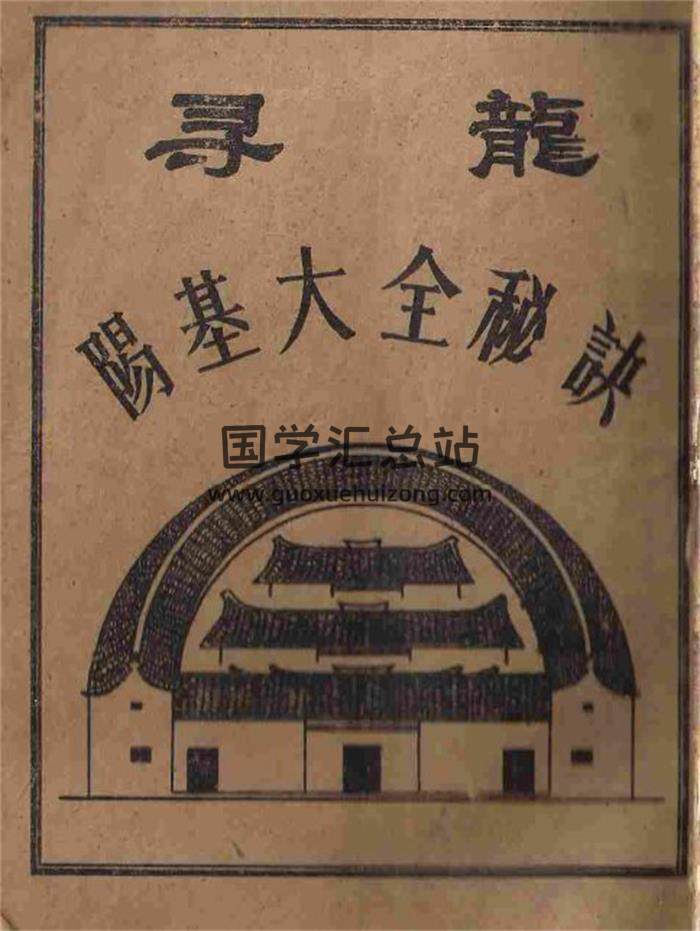 寻龍
陽基大全秘訣
国学汇总站
www.guoxuehuizong.com